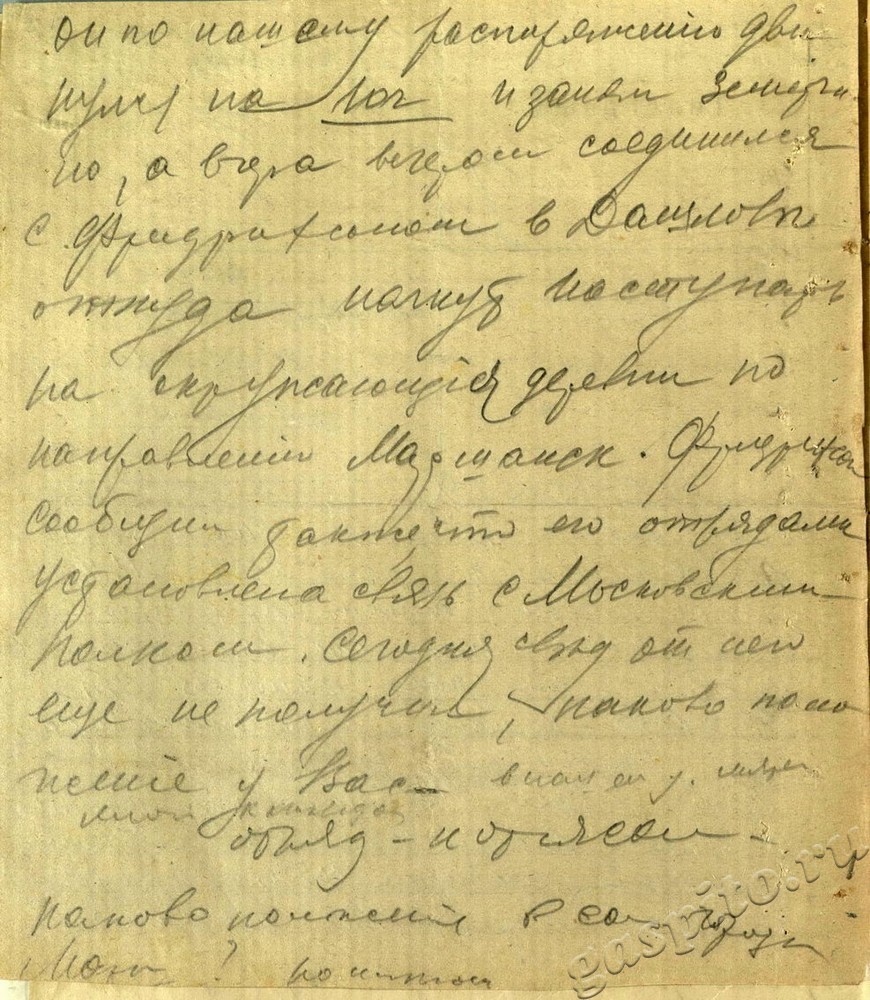 он по нашему распоряжению дви
нулся на юг и занял Земетчи
но, а вчера вечером соединился
с Фридрихсоном в Дашлове
откуда начнут наступать
на окружающия деревни по
направлению Моршанск. Фридрихсон
сообщил также, что его отрядами
установлена связь с Московским
полком. Сегодня свед от него
еще не получил, каково поло
жение у Вас
отряд -
каково положение в сам городе
gaspito.ru